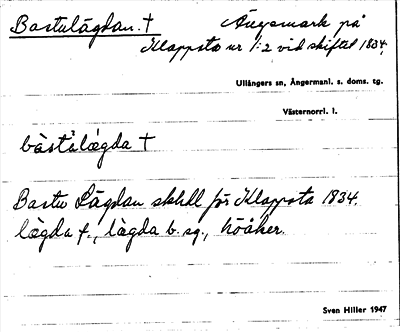 Bastulägdan. † Ängsmark på
Klappsta nr 1:2 vid skiftet 1834.
Ullångers sn, Ångermanl. s. doms. tg.
Västernorrl. l.
bàstålægda †
Bastu Lägdan skhdl för Klappsta 1834.
lægda f., lægda b. sg., höåker.
Sven Hiller 1947